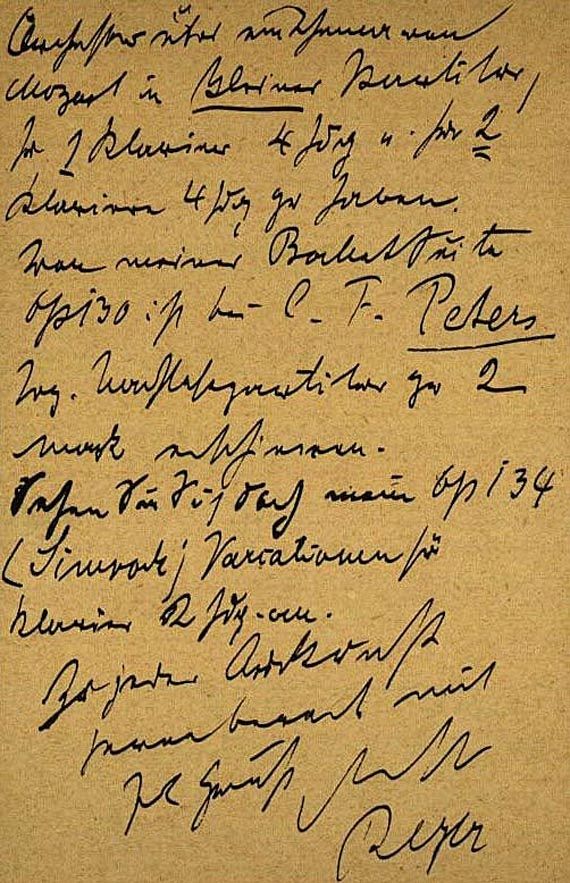 Orchester über ein Thema von
Mozart in kleiner Partitur,
für 1 Klavier 4 hdg u. für 2
Klaviere 4 hdg zu haben.
Von meiner Ballet Suite
op 130 ist bei C. F. Peters
sog. Nachlesepartitur zu 2
Mark erschienen.
Sehen Sie sich doch mein op 134
(Simrock) Variationen für
Klavier 2 hdg. an.
Zu jeder Auskunft
gerne bereit mit
Gruß
Reger